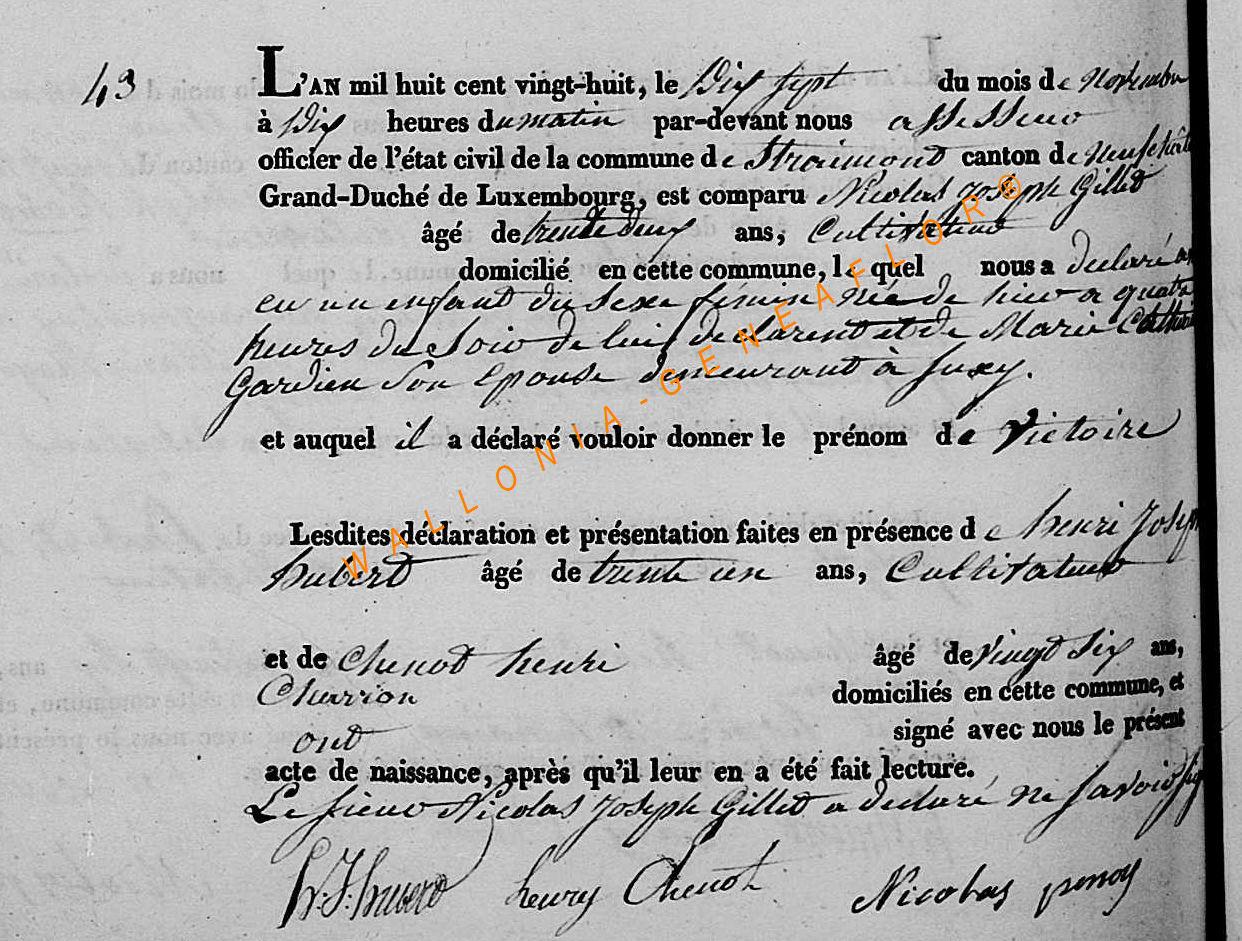 43
L'AN mil huit cent vingt-huit, le Dix sept du mois de Novembre
à Dix heures du matin par-devant nous assesseur
officier de l'état civil de la commune de Straimont canton de Neufchât
Grand-Duché de Luxembourg, est comparu Nicolas Joseph Gillet
âgé de trente deux ans, Cultivateur
domicilié en cette commune, le quel nous a declaré
un enfant du sexe féminin née de hier a quatre
heures du Soir de lui declarent et de Marie
Gardien Son Epouse demeurant à Suxy.
et auquel il a déclaré vouloir donner le prénom de Victoire
Lesdites déclaration et présentation faites en présence de henri Joseph
hubert âgé de trente un ans, Cultivateur
et de Chenot henri âgé de vingt Six ans,
Charron domiciliés en cette commune, et
ont signé avec nous le présent
acte de naissance, après qu'il leur en a été fait lecture.
Le sieur Nicolas Joseph Gillet a declaré ne savoir sig
h. J. hubert henry Chenot Nicolas
WALLONIA-GENEAFLOR®